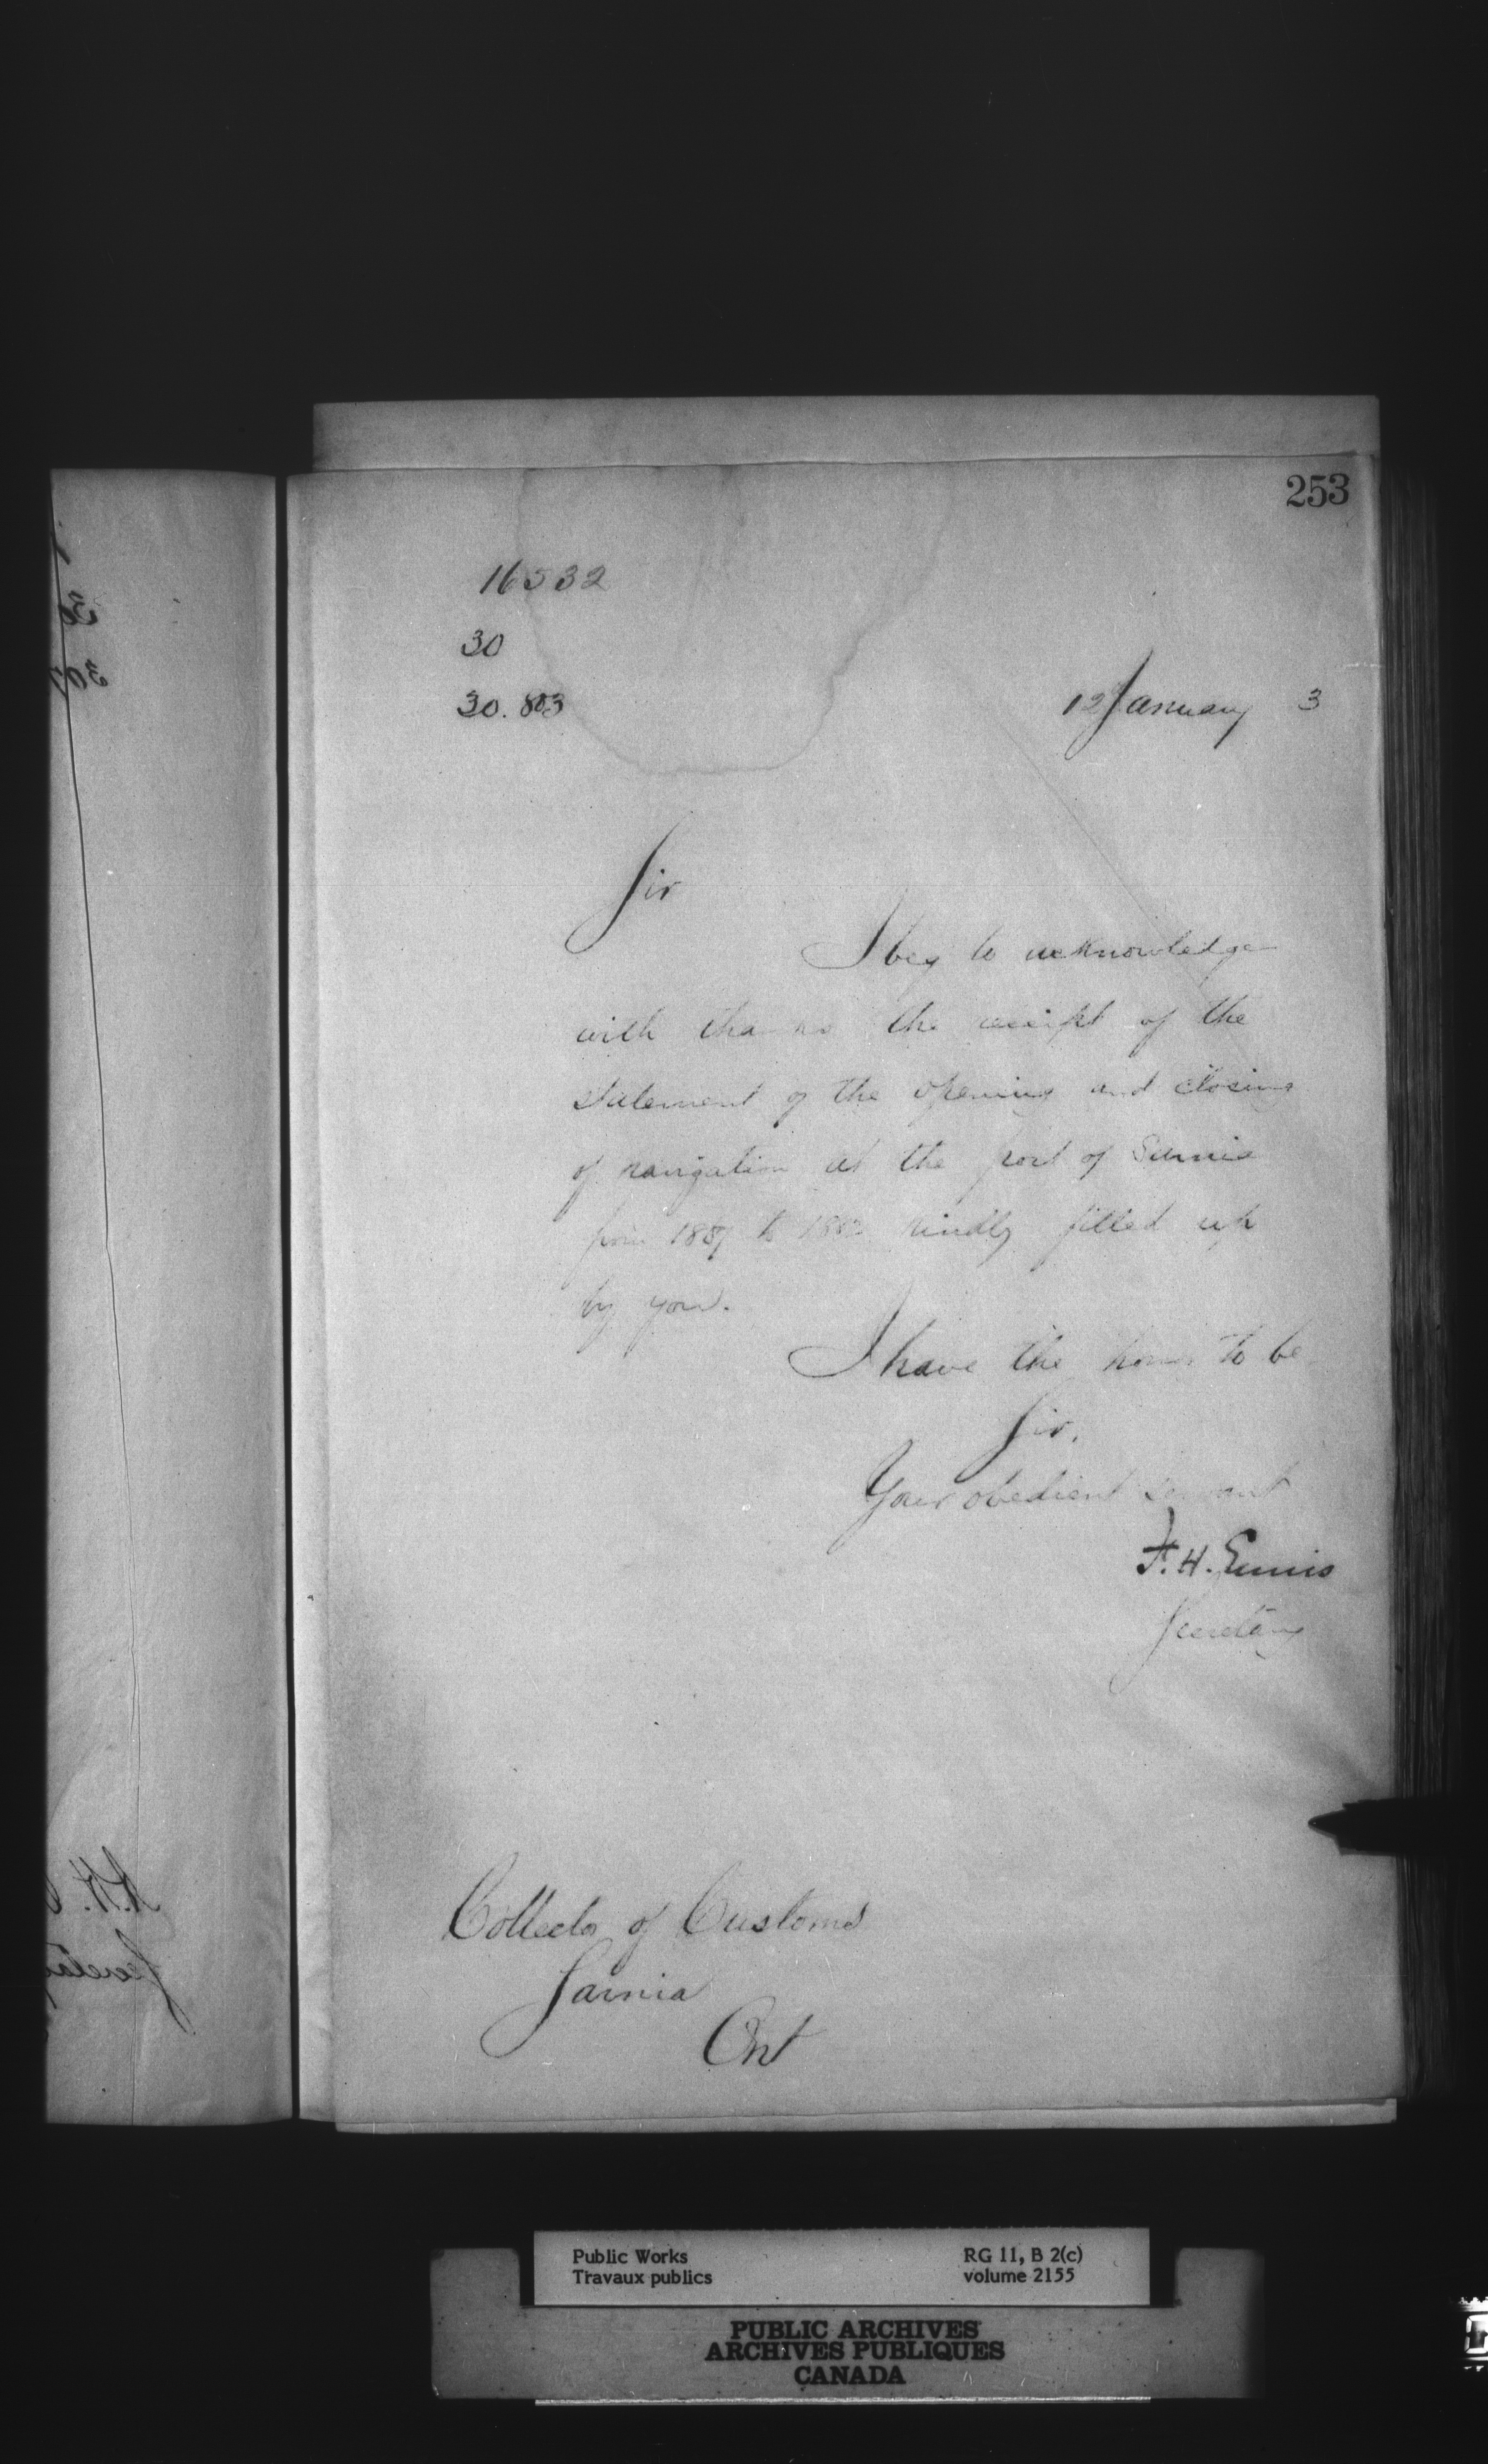 253
16532
30
30. 883
12 January 3
Sir
I beg to acknowledge
with thanks the receipt of the
statement of the opening and closing
of navigation at the port of Sarnia
from to kindly filled up
by you.
I have the honor to be
Sir,
Your obedient servant
F. H. Ennis
Secretary
Collector of Customs
Sarnia
Ont
Public Works
Travaux publics
RG 11, B 2(c)
volume 2155
PUBLIC ARCHIVES
ARCHIVES PUBLIQUES
CANADA